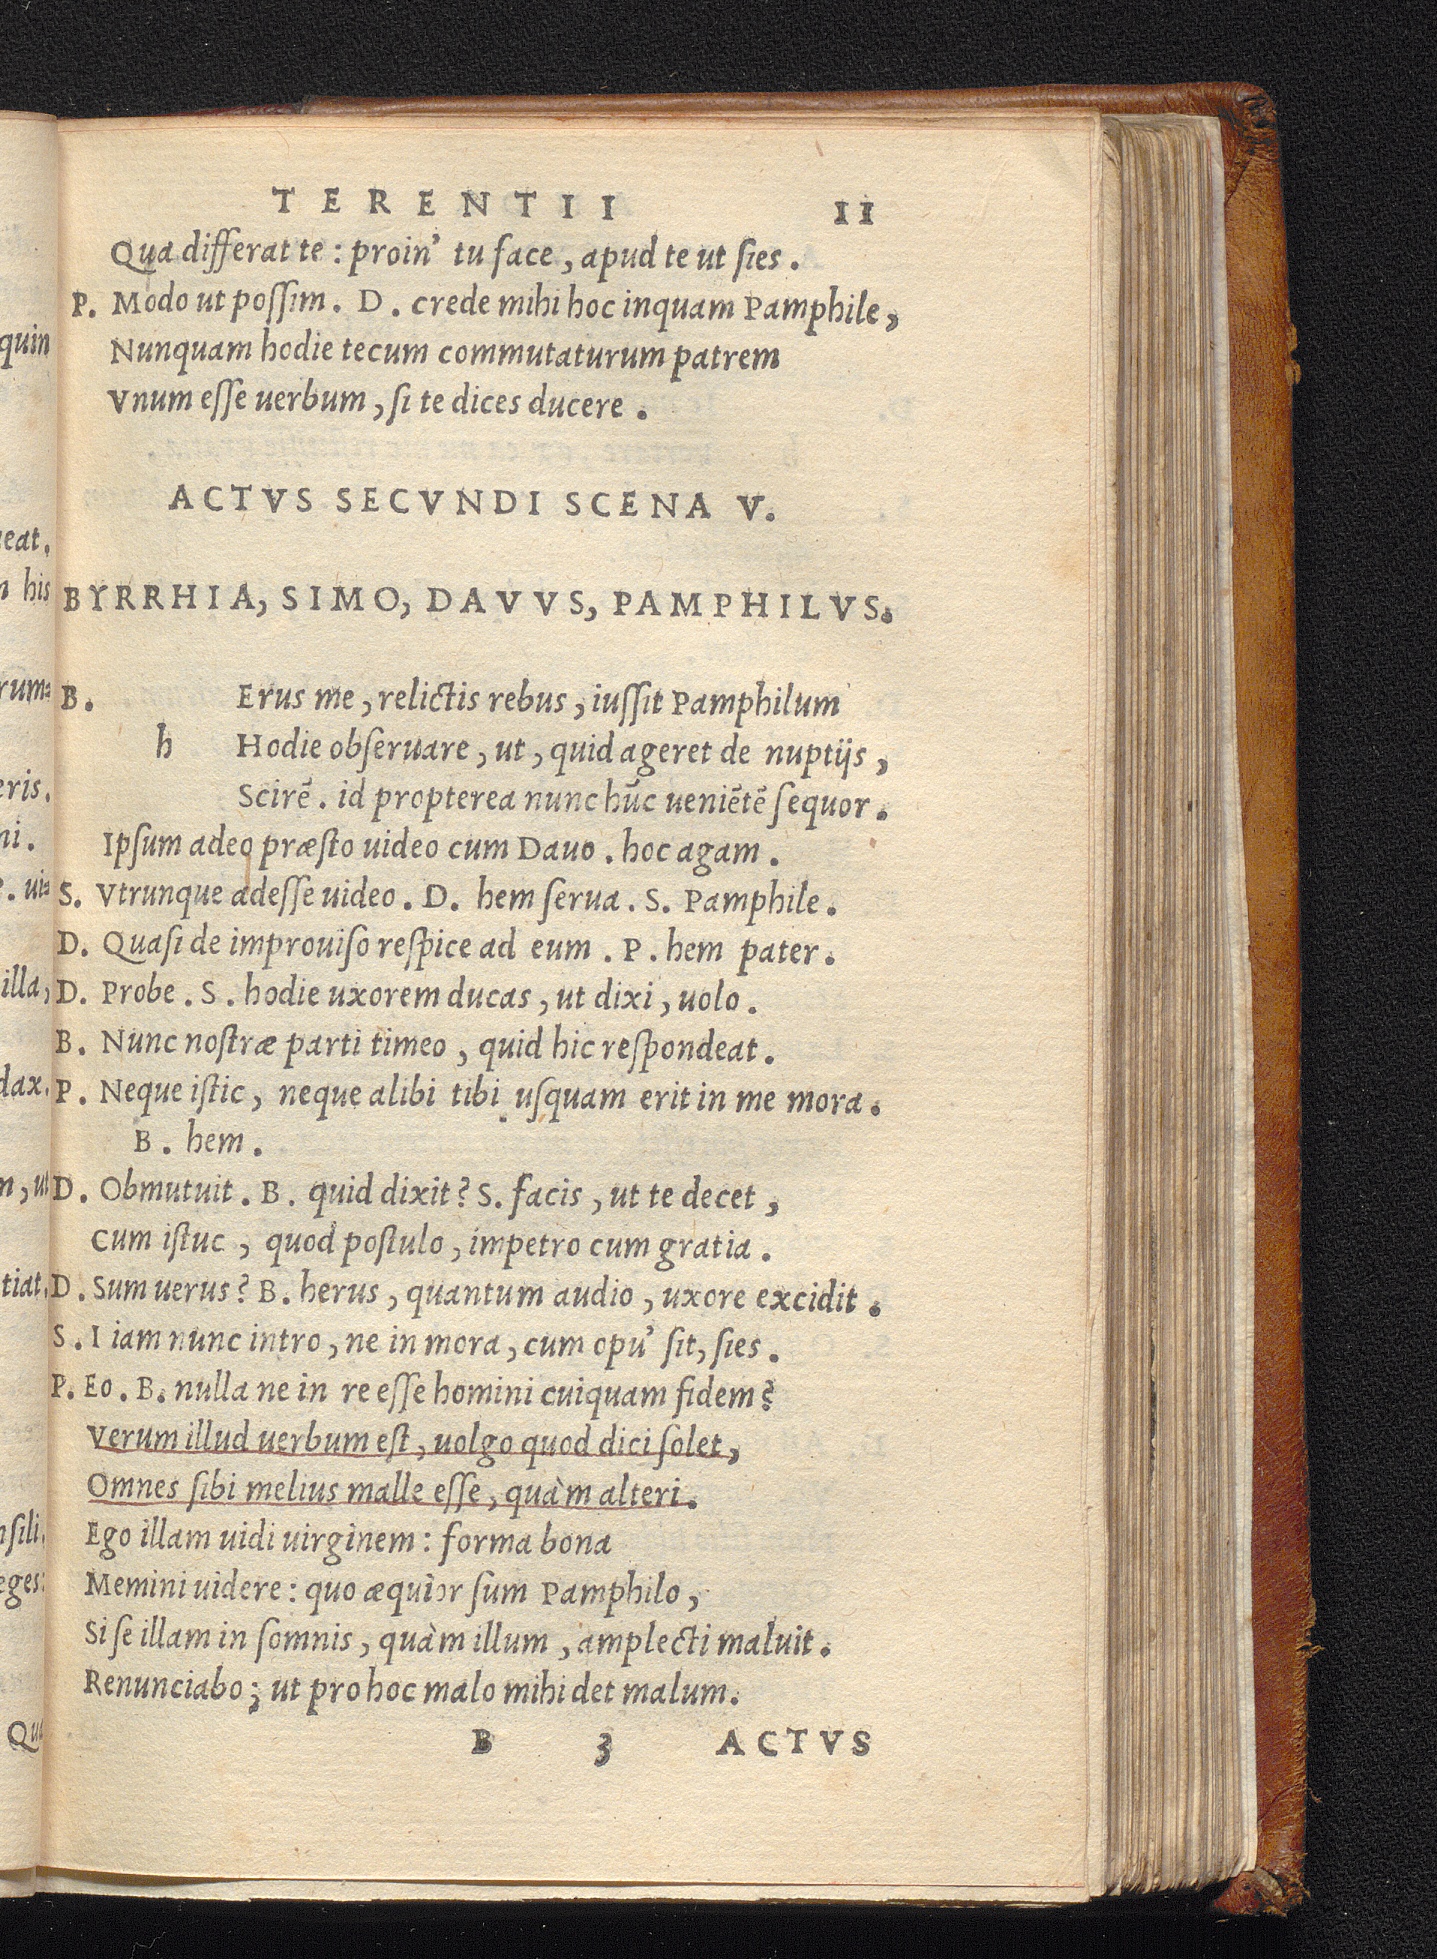 TERENTII 11
Qua differat te : proin' tu face , apud te ut ſies .
P. Modo ut poſſim . D . crede mihi hoc inquam Pamphile ,
Nunquam hodie tecum commutaturum patrem
Vnum eſſe uerbum , ſi te dices ducere .
ACTVS SECVNDI SCENA V.
BYRRHIA, SIMO, DAVVS, PAMPHILVS.
B. Erus me , relictis rebus , iuſſit Pamphilum
h Hodie obſeruare , ut , quid ageret de nuptijs ,
Scirē . id propterea nunc hūc ueniētē ſequor .
Ipſum adeo præſto uideo cum Dauo . hoc agam .
S. Vtrunque adeſſe uideo . D. hem ſerua . S. Pamphile .
D. Quaſi de improuiſo reſpice ad eum . P . hem pater .
D. Probe . S . hodie uxorem ducas , ut dixi , uolo .
B . Nunc noſtræ parti timeo , quid hic reſpondeat .
P . Neque iſtic , neque alibi tibi uſquam erit in me mora .
B . hem .
D . Obmutuit . B . quid dixit ? S. facis , ut te decet ,
Cum iſtuc , quod poſtulo , impetro cum gratia .
D . Sum uerus ? B . herus , quantum audio , uxore excidit .
S . I iam nunc intro , ne in mora , cum opu' ſit, ſies .
P. Eo . B. nulla ne in re eſſe homini cuiquam fidem ?
Verum illud uerbum eſt , uolgo quod dici ſolet ,
Omnes ſibi melius malle eſſe , quàm alteri .
Ego illam uidi uirginem : forma bona
Memini uidere : quo æquior ſum Pamphilo ,
Si ſe illam in ſomnis , quàm illum , amplecti maluit .
Renunciabo ; ut pro hoc malo mihi det malum .
B 3 ACTVS
quin
eat .
his
rum=
eris .
ni .
. ui=
illa ,
dax .
, ut
tiat .
ſili .
eges:
Qua